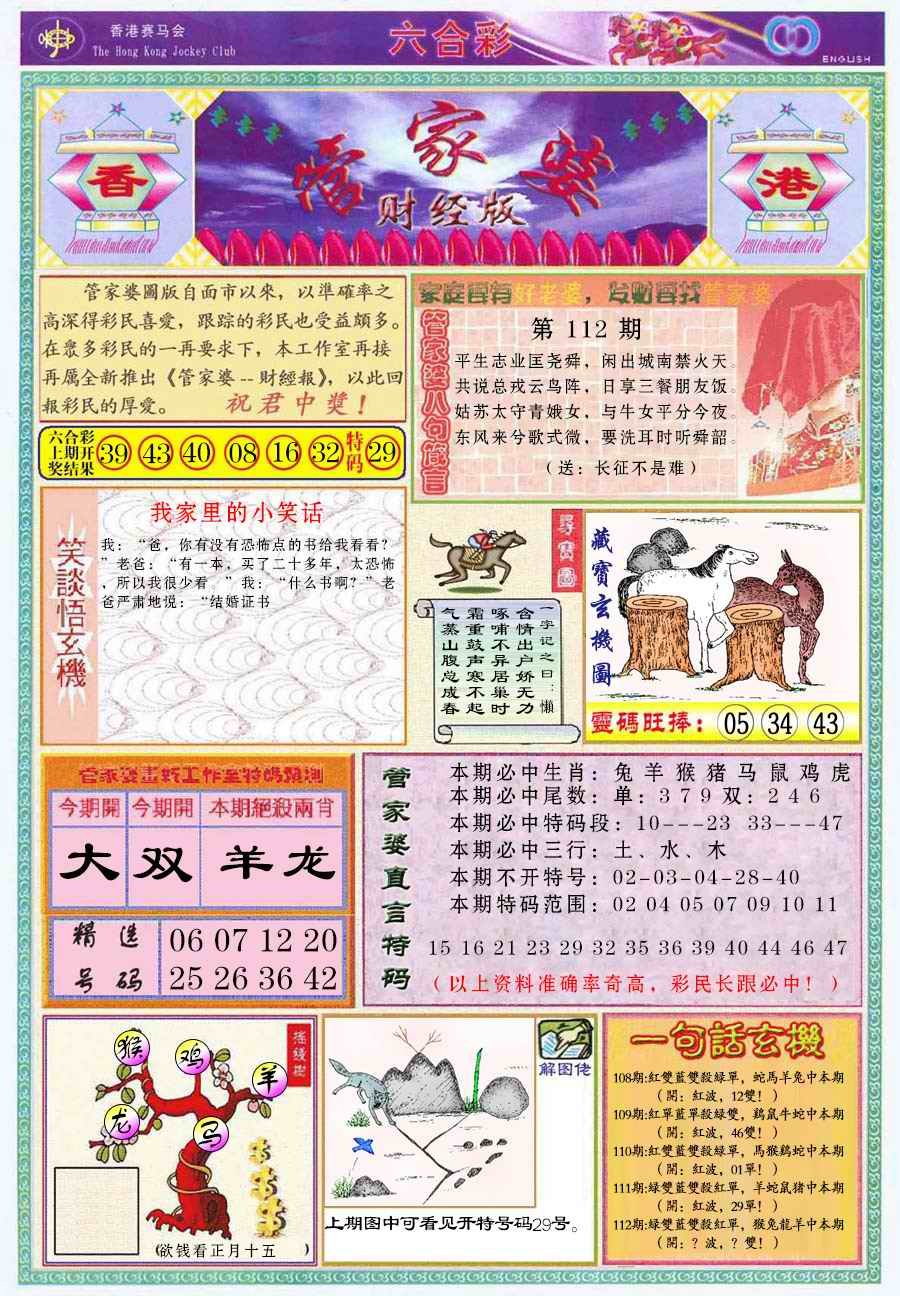 香港赛马会
The Hong Kong Jockey Club
六合彩
ENGLISH
香
管家婆
财经版
港
管家婆圖版自面市以來，以準確率之
高深得彩民喜愛，跟踪的彩民也受益頗多。
在眾多彩民的一再要求下，本工作室再接
再厲全新推出《管家婆--財經報》，以此回
報彩民的厚愛。 祝君中獎！
六合彩
上期开
奖结果
39 43 40 08 16 32 特码 29
家庭要有好老婆，发财要找管家婆
管家婆八句箴言
第 112 期
平生志业匡尧舜，闲出城南禁火天。
共说总戎云鸟阵，日享三餐朋友饭。
姑苏太守青娥女，与牛女平分今夜。
东风来兮歌式微，要洗耳时听舜韶。
（送：长征不是难）
笑談悟玄機
我家里的小笑话
我：“爸，你有没有恐怖点的书给我看看？
”老爸：“有一本，买了二十多年，太恐怖
，所以我很少看。”我：“什么书啊？”老
爸严肃地悦：“结婚证书
尋寶圖
一字记之曰：懒
含情出户娇无力
啄哺不异居巢时
霜重鼓声寒不起
气蒸山腹总成春
藏寶玄機圖
靈碼旺捧： 05 34 43
管家婆畫新工作室特碼預測
今期開 今期開 本期絕殺兩肖
大 双 羊龙
精选
号码
06 07 12 20
25 26 36 42
管家婆直言特码
本期必中生肖：兔羊猴猪马鼠鸡虎
本期必中尾数：单：3 7 9 双：2 4 6
本期必中特码段：10---23 33---47
本期必中三行：土、水、木
本期不开特号：02-03-04-28-40
本期特码范围：02 04 05 07 09 10 11
15 16 21 23 29 32 35 36 39 40 44 46 47
（以上资料准确率奇高，彩民长跟必中！）
摇錢樹
猴
鸡
羊
龙
马
(欲钱看正月十五 )
解图佬
上期图中可看见开特号码29号。
一句話玄機
108期:紅雙藍雙殺緑單，蛇馬羊兔中本期
（開：紅波，12雙！）
109期:紅單藍單殺緑雙，鷄鼠牛蛇中本期
（開：紅波，46雙！）
110期:紅雙藍雙殺緑單，馬猴鷄蛇中本期
（開：紅波，01單！）
111期:緑雙藍雙殺紅單，羊蛇鼠猪中本期
（開：紅波，29單！）
112期:緑雙藍雙殺紅單，猴兔龍羊中本期
（開：？波，？雙！）